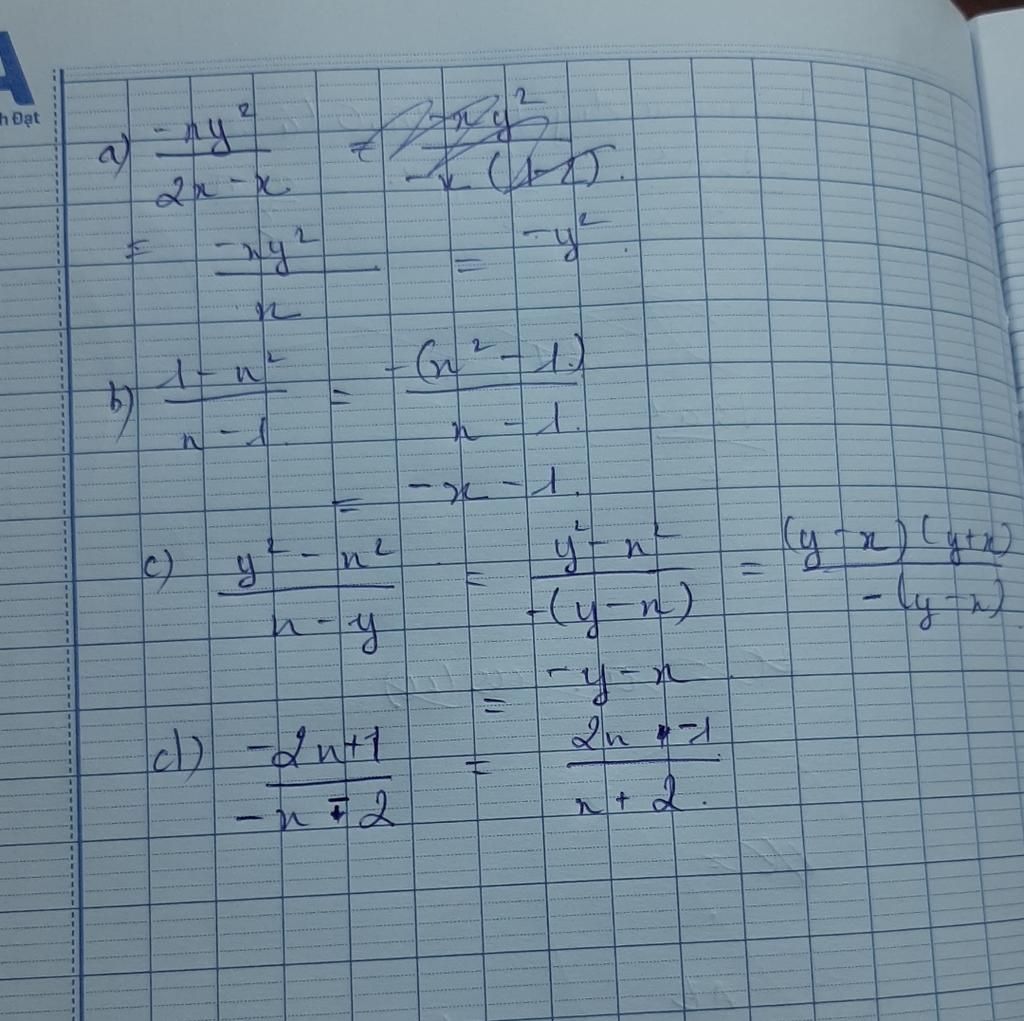 A
h Đạt
a) -xy² / 2x - x = -xy² / -x (1-2).
= -xy² / x = -y².
b) 1 - x² / x - 1 = -(x² - 1.) / x - 1.
= -x - 1.
c) y² - x² / x - y = y² - x² / -(y - x) = (y - x) (y+x) / -(y - x)
= -y - x
d) -2x+1 / -x - 2 = 2x - 1 / x + 2.